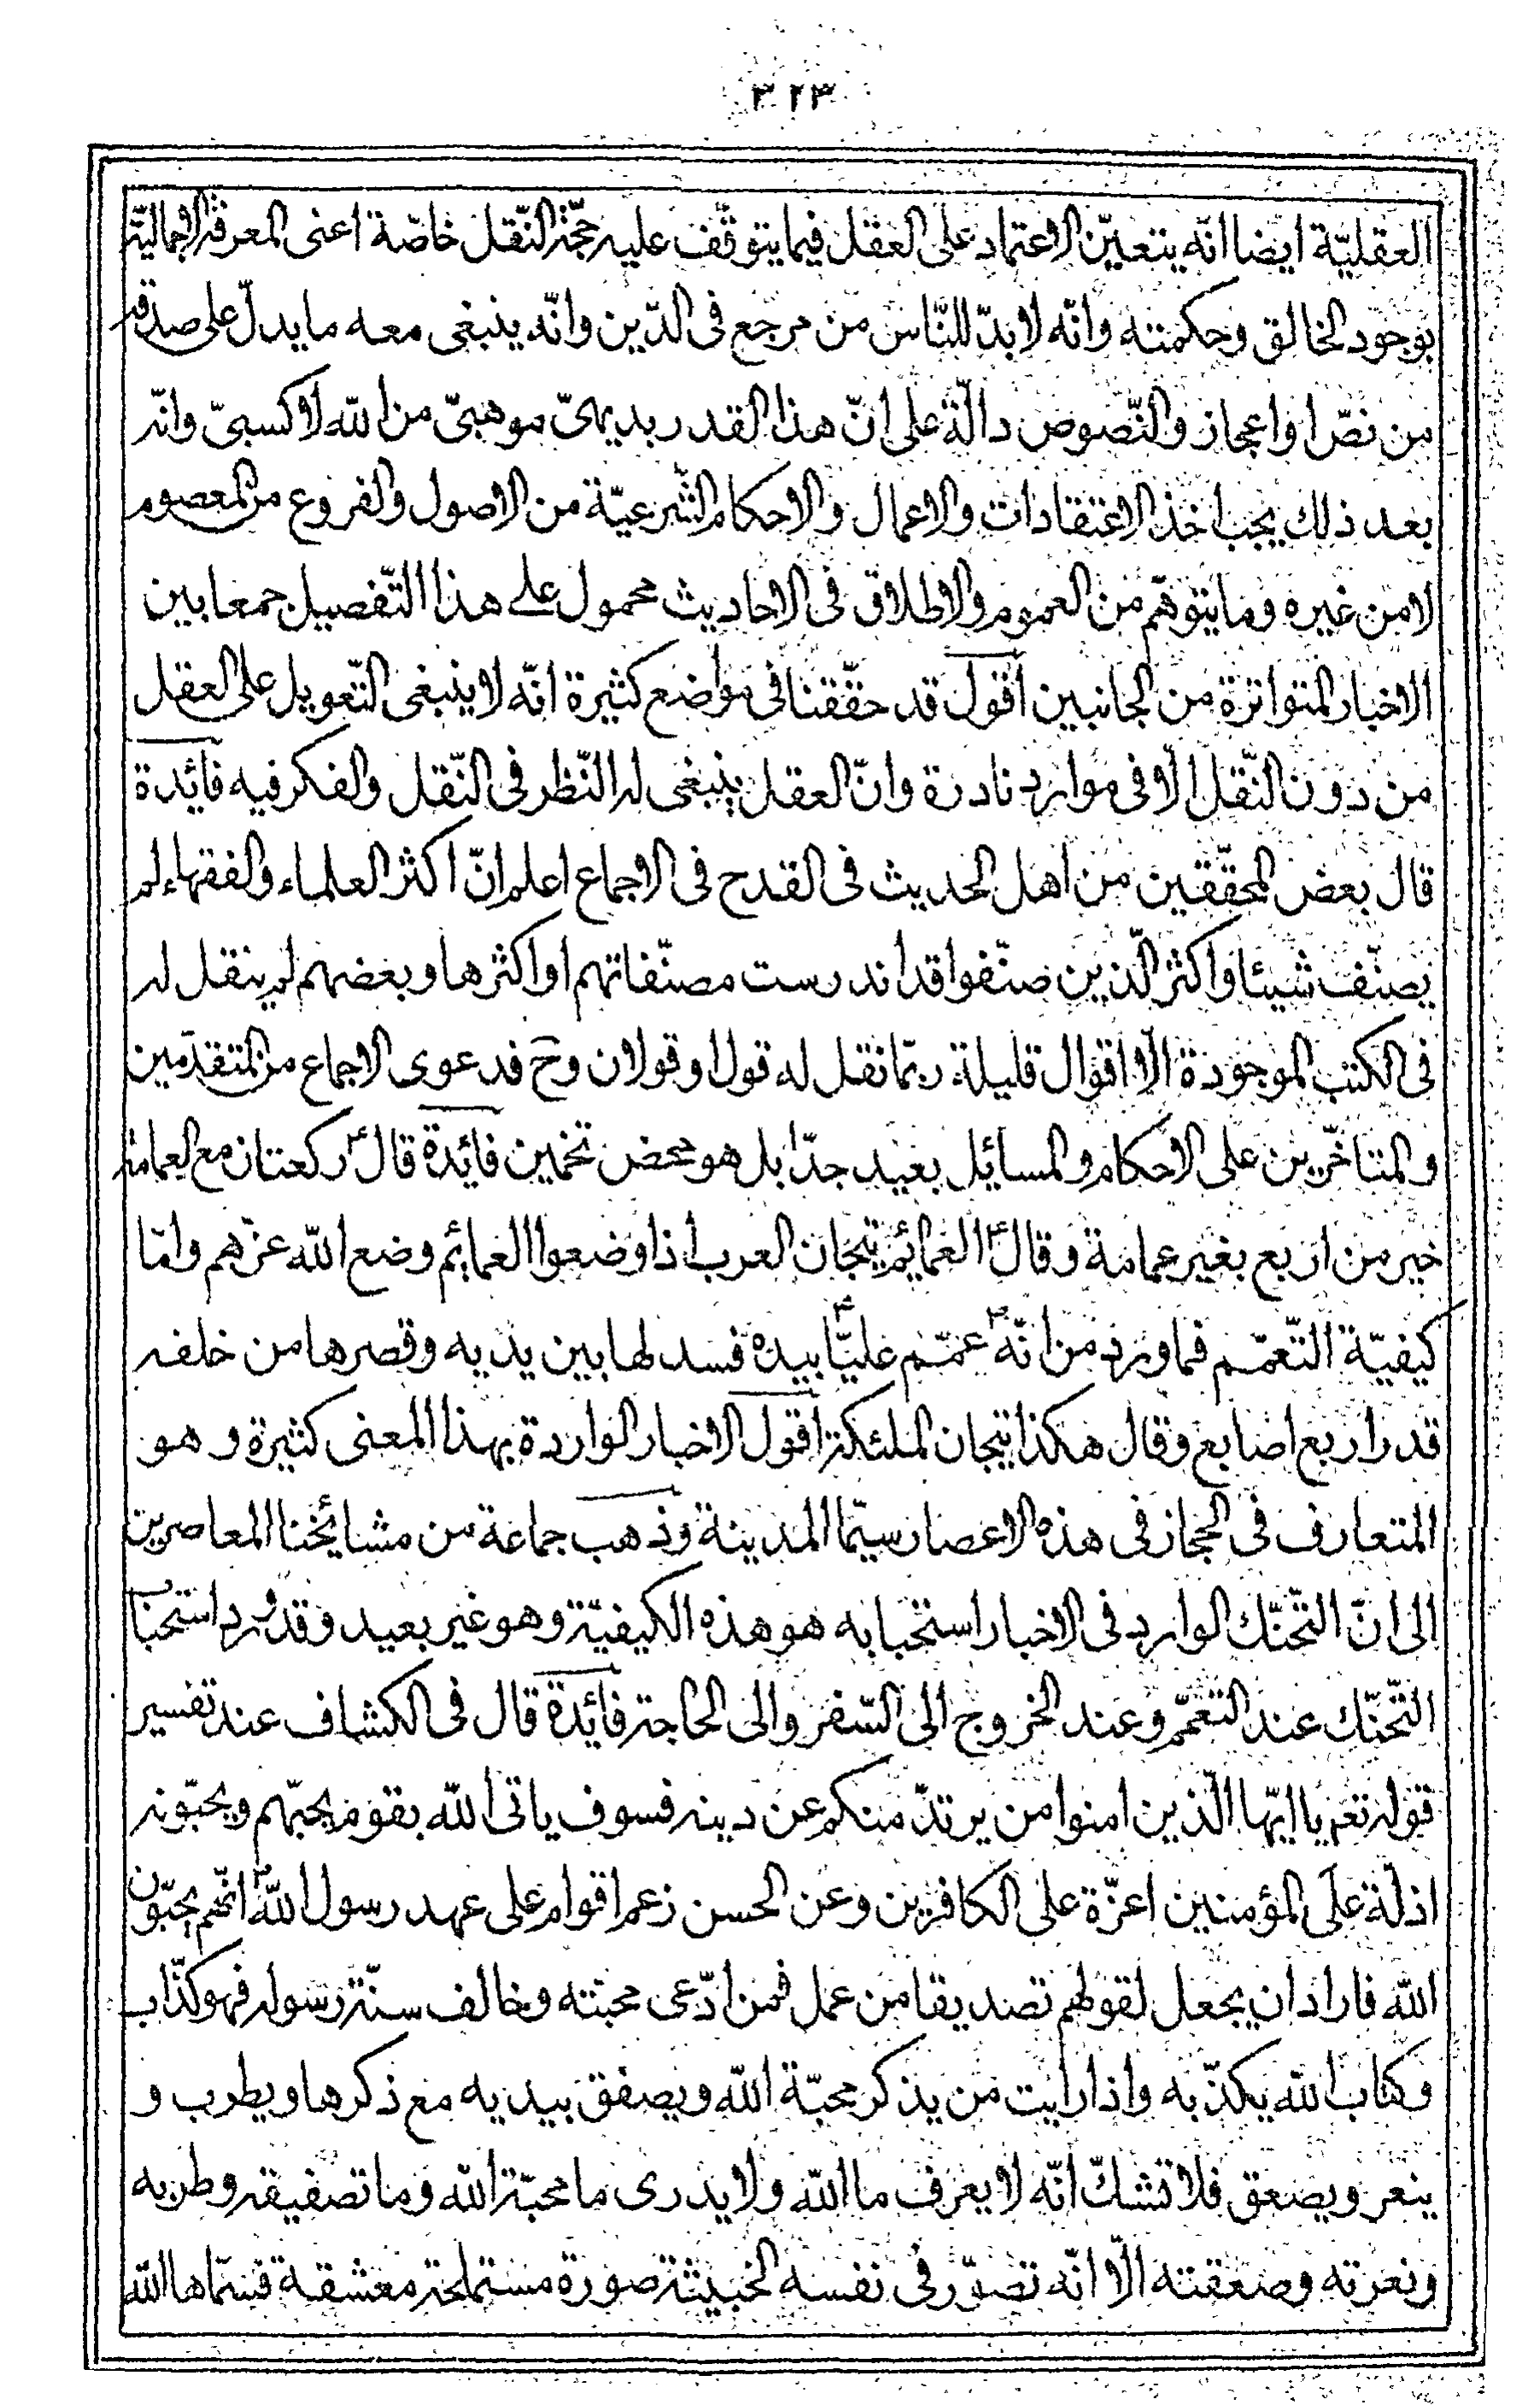 ٣٢٣
العقليّة ايضا انّه يتعيّن الاعتماد على العقل فيما يتوقّف عليه حجّيّة النّقل خاصّة اعنى المعرفة الاجماليّة
بوجود الخالق وحكمته وانّه لا بدّ للنّاس من مرجع فى الدّين وانّه ينبغى معه ما يدلّ على صدقه
من نصّ او اعجاز والنّصوص دالّة على انّ هذا القدر بديهىّ موهبىّ من اللّه لا كسبىّ وانّه
بعد ذلك يجب اخذ الاعتقادات والاعمال والاحكام الشّرعيّة من الاصول والفروع من المعصوم
لا من غيره وما يتوهّم من العموم والاطلاق فى الاحاديث محمول على هذا التّفصيل جمعا بين
الاخبار المتواترة من الجانبين اقول قد حقّقنا فى مواضع كثيرة انّه لا ينبغى التّعويل على العقل
من دون النّقل الّا فى موارد نادرة وانّ العقل ينبغى له النّظر فى النّقل والفكر فيه فائدة
قال بعض المحقّقين من اهل الحديث فى القدح فى الاجماع اعلم انّ اكثر العلماء والفقهاء لم
يصنّف شيئا واكثر الّذين صنّفوا قد اندرست مصنّفاتهم او اكثرها وبعضهم لم ينقل له
فى الكتب الموجودة الّا اقوال قليلة ربّما نقل له قول او قولان وح فدعوى الاجماع من المتقدّمين
والمتاخّرين على الاحكام والمسائل بعيد جدّا بل هو محض تخمين فائدة قال ص ركعتان مع العمامة
خير من اربع بغير عمامة وقال ص العمائم تيجان العرب اذا وضعوا العمائم وضع اللّه عزّهم وامّا
كيفيّة التّعمّم فما ورد من انّه ص عمّم عليّا بيده فسدلها بين يديه وقصرها من خلفه
قدر اربع اصابع وقال هكذا تيجان الملئكة اقول الاخبار الواردة بهذا المعنى كثيرة وهو
المتعارف فى الحجاز فى هذه الاعصار سيّما المدينة وذهب جماعة من مشائخنا المعاصرين
الى انّ التّحنّك الوارد فى الاخبار استحبابه هو هذه الكيفيّة وهو غير بعيد وقد ورد استحباب
التّحنّك عند التعمّم وعند الخروج الى السّفر والى الحاجة فائدة قال فى الكشاف عند تفسير
قوله تعم يا ايّها الّذين امنوا من يرتدّ منكم عن دينه فسوف ياتى اللّه بقوم يحبّهم ويحبّونه
اذلّة على المؤمنين اعزّة على الكافرين وعن الحسن زعم اقوام على عهد رسول اللّه ص انّهم يحبّون
اللّه فاراد ان يجعل لقولهم تصديقا من عمل فمن ادّعى محبّته وخالف سنّة رسوله فهو كذّاب
وكتاب اللّه يكذّبه واذا رايت من يذكر محبّة اللّه ويصفق بيديه مع ذكرها ويطرب و
ينعر ويصعق فلا تشكّ انّه لا يعرف ما اللّه ولا يدرى ما محبّة اللّه وما تصفيقه وطربه
ونعرته وصعقته الّا انّه تصوّر فى نفسه الخبيثة صورة مستملحة معشقة فسمّاها اللّه